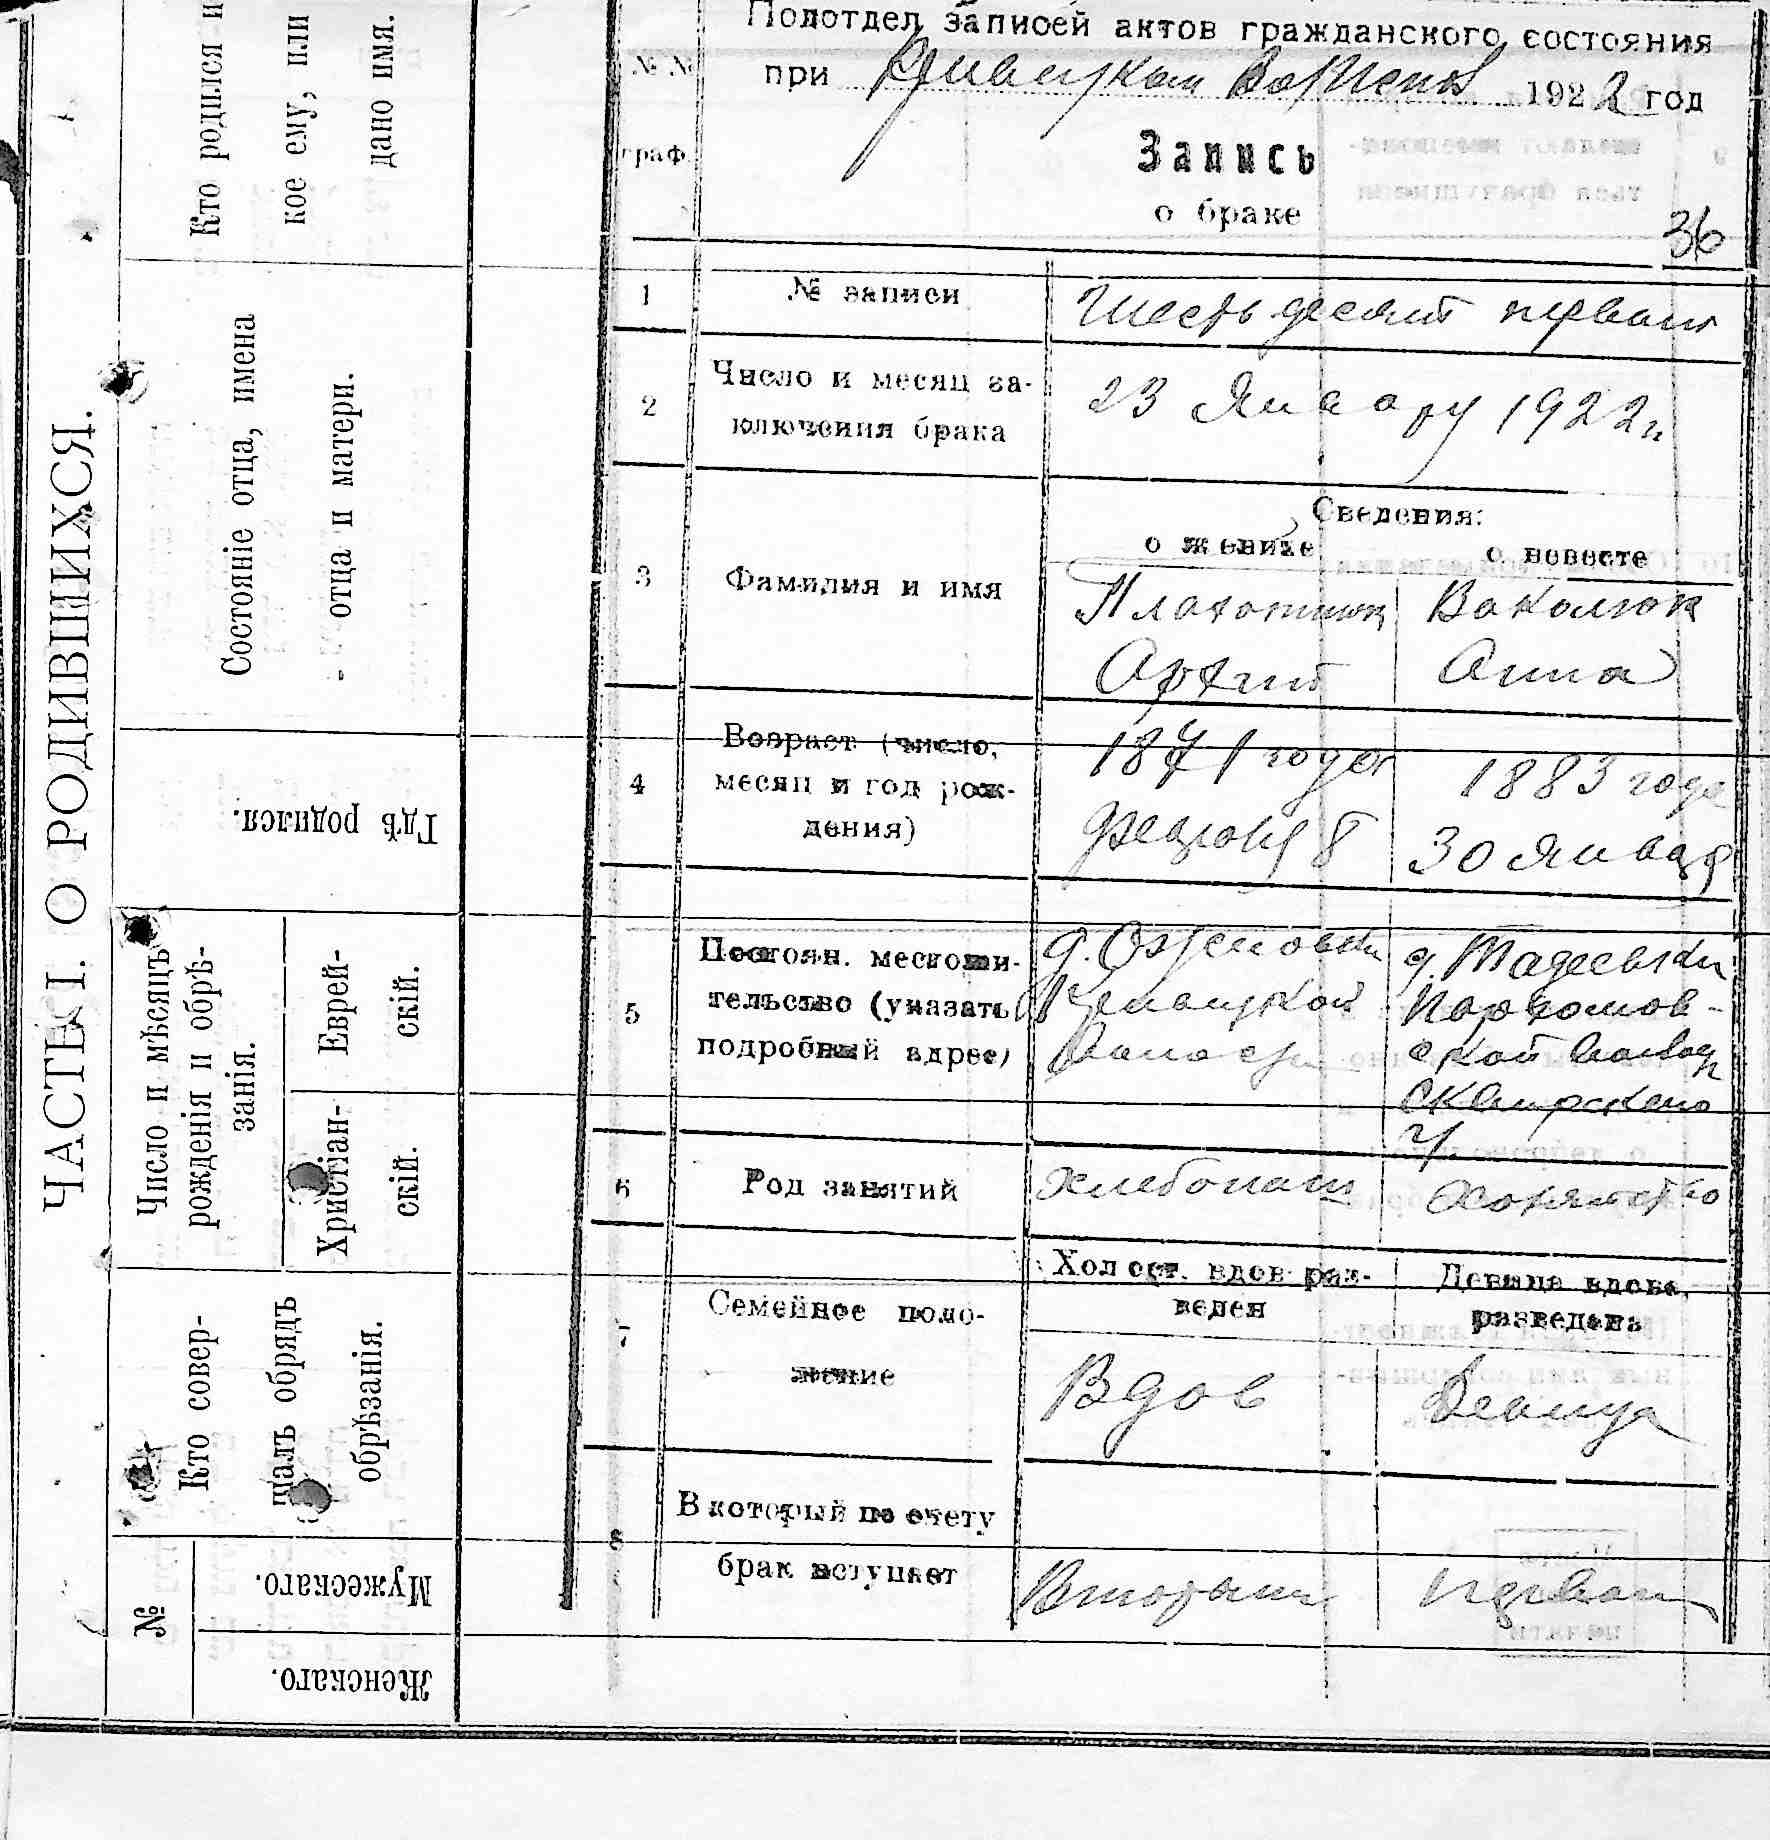 ЧАСТЬ I. О РОДИВШИХСЯ.
Кто родился и
кое ему, или
дано имя.
Состояніе отца, имена
отца и матери.
Гдѣ родился.
Число и мѣсяцъ
рожденія и обрѣ-
занія.
Еврей-
скій.
Христіан-
скій.
Кто совер-
шалъ обрядъ
обрѣзанія.
№
Мужескаго.
Женскаго.
Подотдел записей актов гражданского состояния
при 1922 год
№ №
граф.
Запись
о браке
36
1 № записи
Шестьдесят первый
2 Число и месяц за-
ключения брака
23 Январу 1922 г
Сведения:
о женихе о невесте
3 Фамилия и имя
Вакалюк
Анна
4 Возраст (число,
месяц и год рож-
дения)
1871 года
8
1883 года
30 Января
5 Постоян. месножи-
тельство (указать
подробный адрес)
д.
д. Тадеевки
Пархомов-
ской
Сквирского
у
6 Род занятий
хлебопаш
7 Семейное поло-
жение
Холост. вдов раз-
веден
Девица вдова,
разведена
Вдов
Девица
8 В который по счету
брак вступает
Вторый
Первый